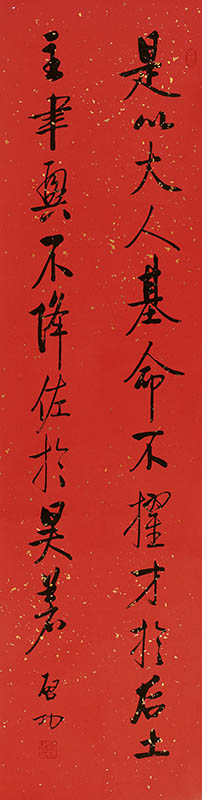 是以大人基命不擢才於后土
主聿興不降佐於昊蒼 启功